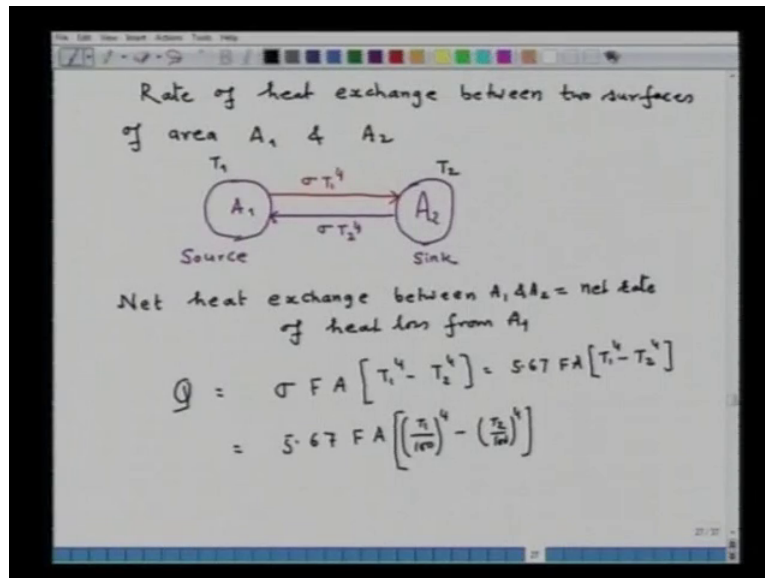 File Edit View Insert Actions Tools Help
Rate of heat exchange between two surfaces
of area A₁ & A₂
T₁ T₂
σ T₁⁴
A₁ A₂
σ T₂⁴
Source Sink
Net heat exchange between A₁ & A₂ = net rate
of heat loss from A₁
Q = σ F A [T₁⁴ - T₂⁴] = 5.67 F A [T₁⁴ - T₂⁴]
= 5.67 F A [(T₁/100)⁴ - (T₂/100)⁴]
27/27
27